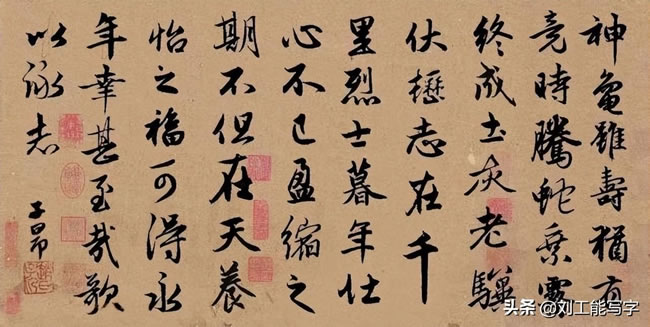 神龜雖壽猶有
竟時騰蛇乘霧
終成土灰老驥
伏櫪志在千
里烈士暮年壮
心不已盈縮之
期不但在天養
怡之福可得永
年幸甚至哉歌
以詠志
子昂
头条 @刘工能写字